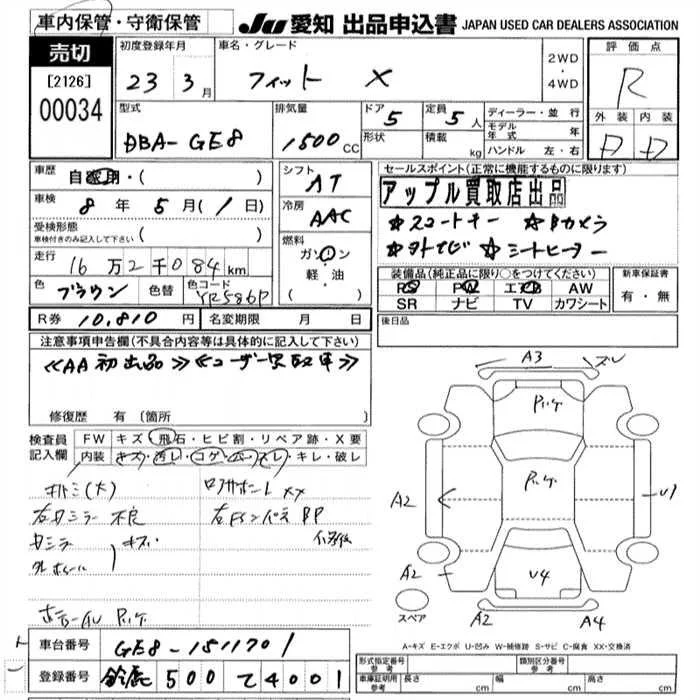 車内保管・守衛保管
JU 愛知 出品申込書 JAPAN USED CAR DEALERS ASSOCIATION
売切
[2126]
00034
初度登録年月
23 3月
車名・グレード
フィット X
2WD
・
4WD
評価点
R
外装 内装
D D
型式
DBA-GE8
排気量
1500 CC
ドア 5
形状
定員 5人
積載 kg
ディーラー・並行
モデル年式 年
ハンドル 左・右
車歴 自家用・( )
車検 8年 5月( 1日)
受検形態
車検付きのみ記入して下さい ( )
走行 16万2千084km
色 ブラウン 色替 色コード YR586P
シフト AT
冷房 AAC
燃料
ガソリン
軽・油
( )
セールスポイント(正常に機能するものに限ります)
アップル買取店出品
☆スマートキー ☆Bカメラ
☆シートヒーター
装備品(純正品に限り○をつけてください)
PS PW エアB AW
SR ナビ TV カワシート
新車保証書
有・無
R券 10,810円 名変期限 月 日
後日品
注意事項申告欄(不具合内容等は具体的に記入して下さい)
≪AA初出品≫≪ユーザー買取車≫
修復歴 有 (箇所
検査員記入欄
FW キズ・飛石・ヒビ割・リペア跡・X要
内装 キズ・汚レ・コゲ・穴・スレ・キレ・破レ
右ミラー 不良
キズ
A3
A2
A2
A2
V4
A4
スペア
A-キズ E-エクボ U-凹み W-補修跡 S-サビ C-腐食 XX-交換済
車台番号 GE8-1511701
登録番号 鈴鹿 500 て 4001
形式指定番号
参考
類別区分番号
参考
車庫証明用
参考
長さ cm
幅 cm
高さ cm